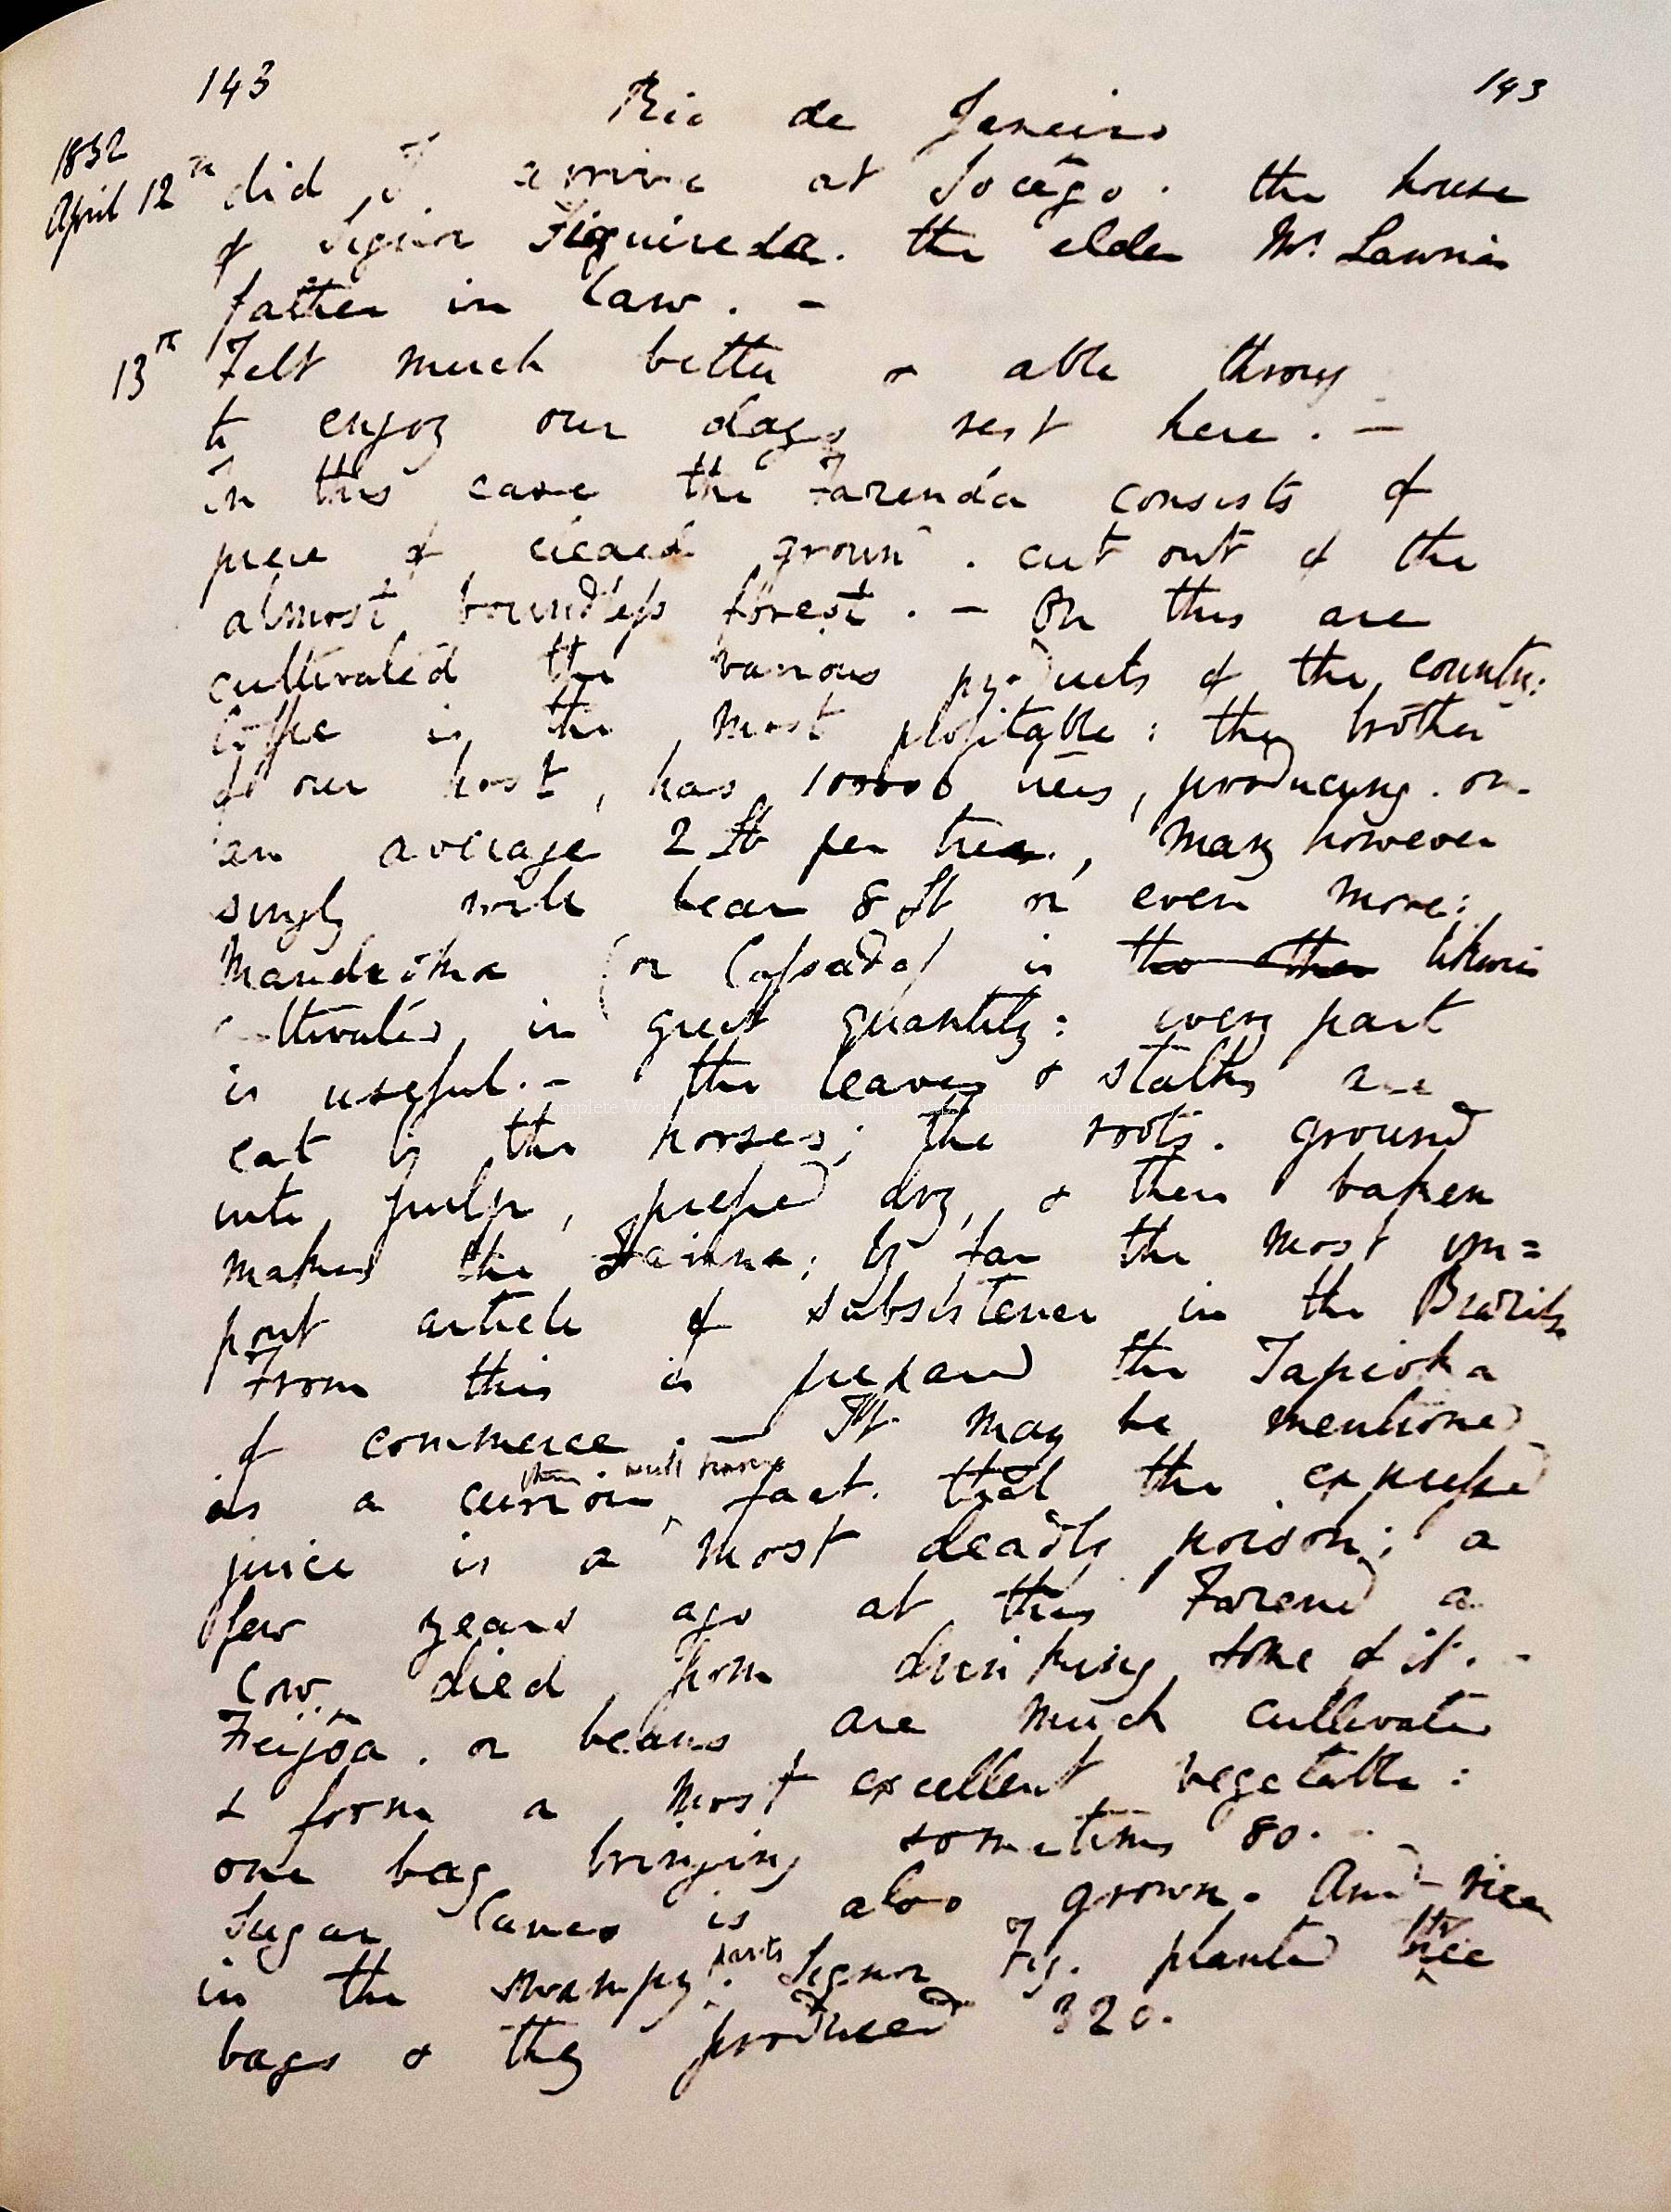 143 Rio de Janeiro 143
1832
April 12th did I arrive at Socêgo. the house
of Signor Figuireda. the elder Mr. Lawries
father in law. –
13th Felt much better & able
to enjoy our days rest here. –
In this case the Fazenda consists of
piece of cleared ground. cut out of the
almost boundless forest. – On this are
cultivated the various products of the country:
Coffee is the most profitable: the brother
of our host, has 100000 trees, producing. on
an average 2 lb per tree., many however
singly will bear 8 lb or even more:
Mandeōka (or Cassada) is the other likewise
cultivated in great quantity: every part
is useful. – the leaves & stalks are
eat by the horses; the roots. ground
into pulp, pressed dry, & then baken
makes the Farinna; by far the most im=
port article of subsistence in the Brazils.
From this is prepared the Tapioka
of commerce. – It may be mentioned
well known
as a curious fact. that the expressed
juice is a most deadly poison; a
few years ago at this Fazend a
cow died from drinking some of it. –
Feijōa. or beans are much cultivated
& form a most excellent vegetable:
one bag bringing sometimes 80.
Sugar Cane is also grown. And rice
parts
in the swampy. Signor Fig. planted three
bags & they produced 320.